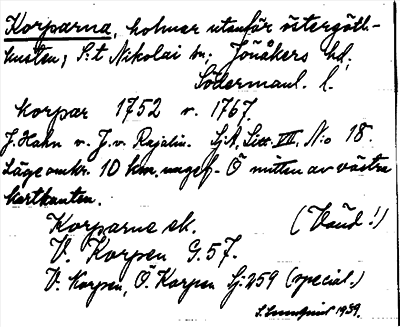 Korparna, holmar utanför östergötl.-
kusten, S:t Nikolai sn, Jönåkers hd,
Södermanl. l.
Korpar 1752 r. 1767.
J. Hahn v. J. v. Rajalin. SjK, Litt. VII, N:o 18.
Läge omkr. 10 km. ungef. Ö mitten av västra
kartkanten.
Korparne ek. (Vänd!)
V. Korpen G. 57.
V. Korpen, Ö. Korpen Sj. 259 (special.)
1939.